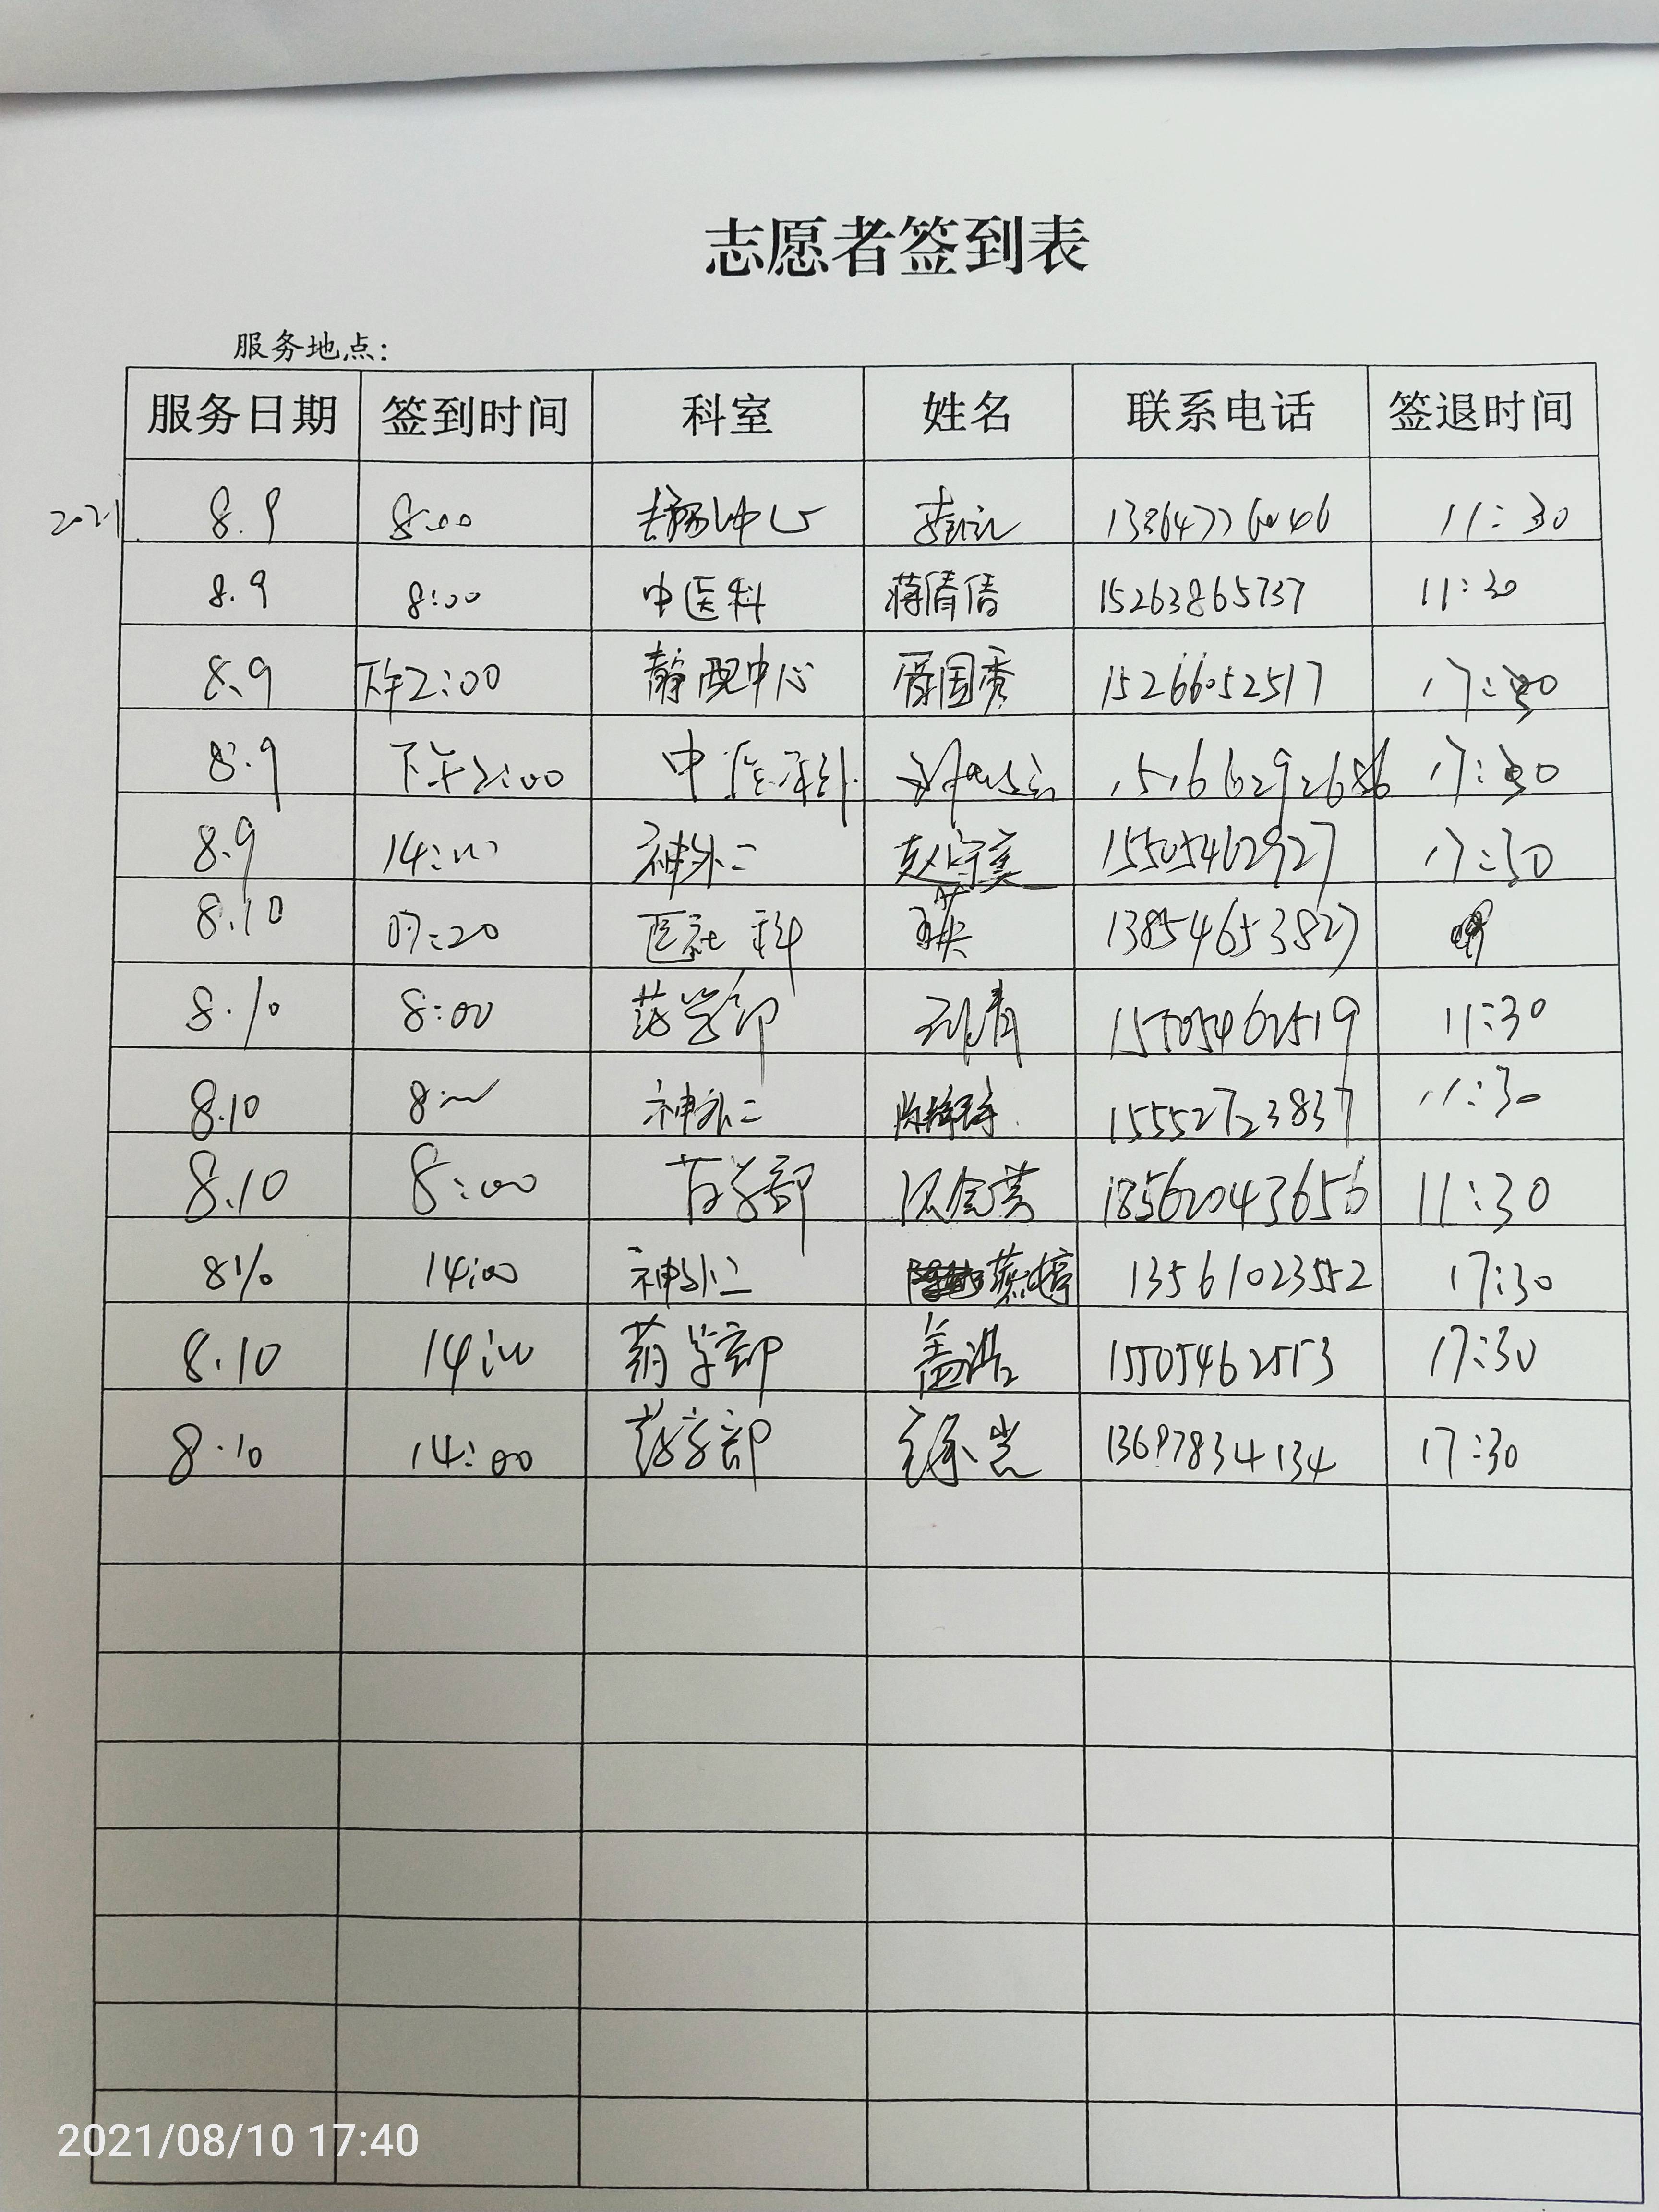 志愿者签到表
服务地点:
服务日期 签到时间 科室 姓名 联系电话 签退时间
2021 8.9 8:00 11:30
8.9 8:00 中医科 蒋倩倩 15263865737 11:30
8.9 下午2:00 静配中心 国秀 15266052517 17:30
8.9 下午2:00 中 15166292686 17:30
8.9 14:00 神外二 赵守美 15505462927 17:30
8.10 07:20 医社科 13854653827
8.10 8:00 药学部 15505462519 11:30
8.10 8:00 神外二 15552723837 11:30
8.10 8:00 药学部 18562043656 11:30
8.10 14:00 神外二 13561023552 17:30
8.10 14:00 药学部 盖浩 15505462513 17:30
8.10 14:00 药学部 13697834134 17:30
2021/08/10 17:40